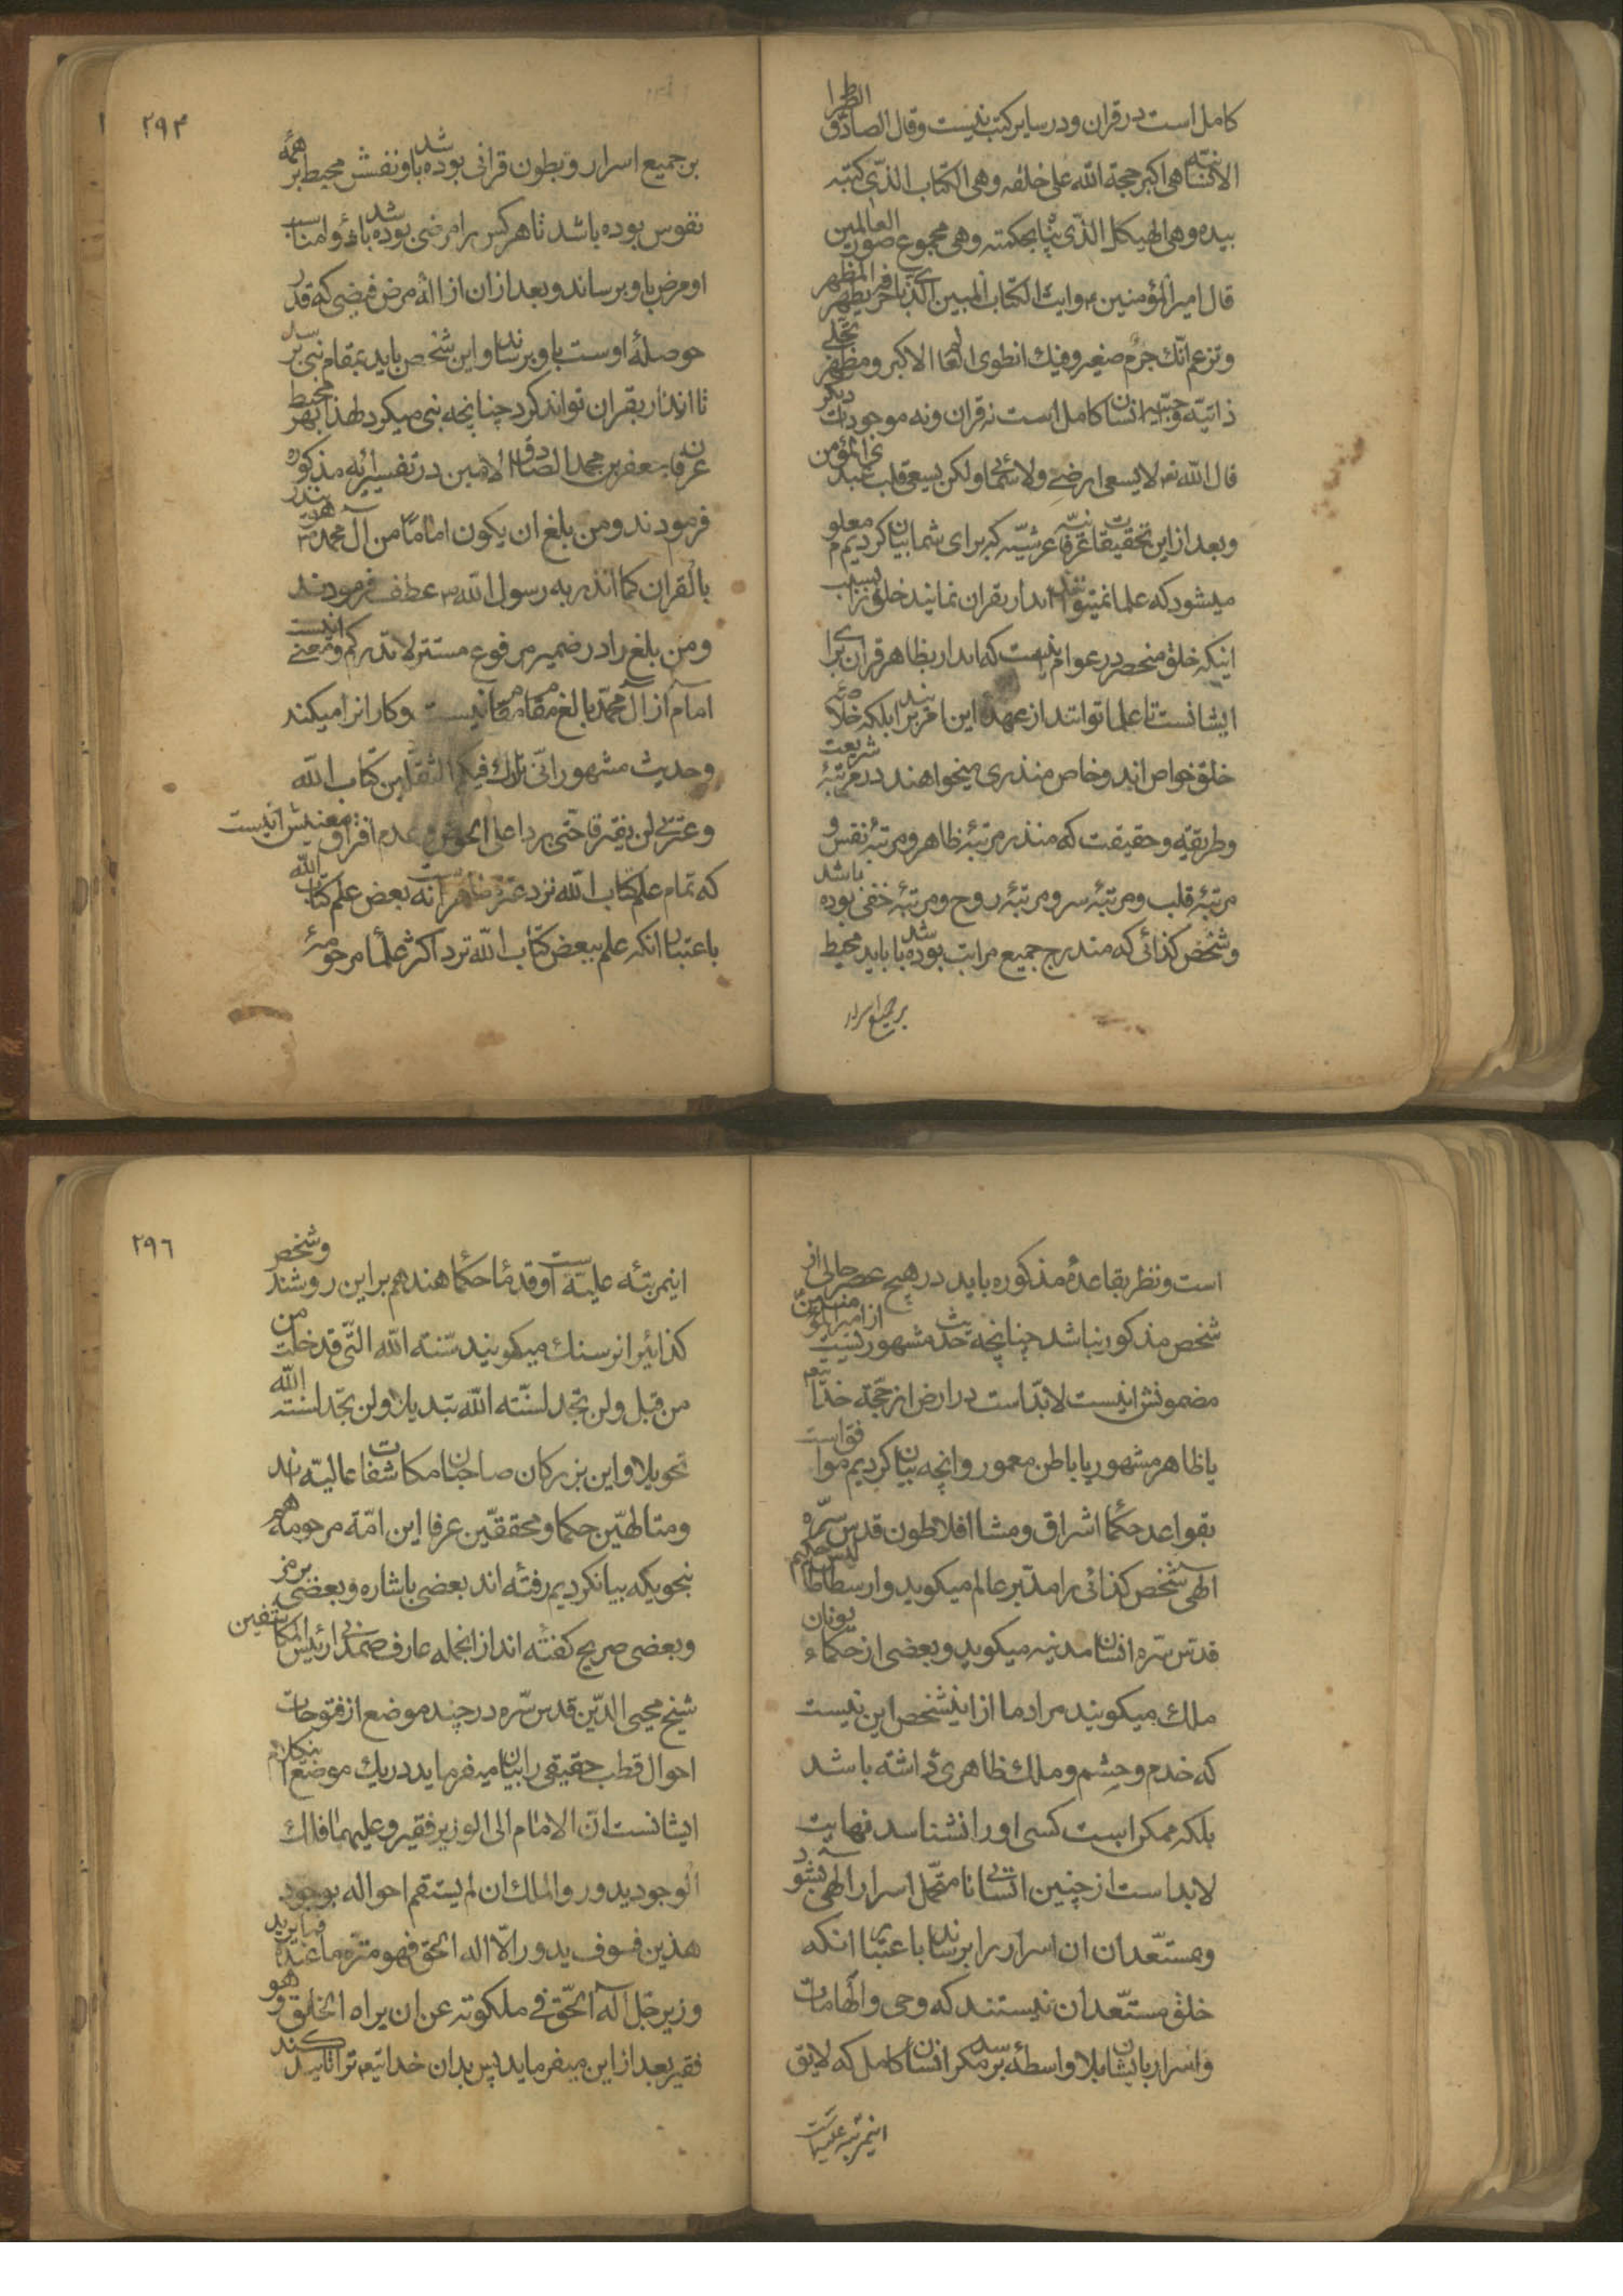 کامل است در قران و در سایر کتب نیست و قال الصادق الطهرا
الانسانیته هی اکبر حجة الله علی خلقه و هی الکتاب الذی کتبه
بیده و هی الهیکل الذی بناه بحکمته و هی مجموع صور العالمین
قال امیر المؤمنین ع و انت الکتاب المبین الذی باحرفه یظهر المظهر
و تزعم انک جرم صغیر و فیک انطوی العالم الاکبر و مظهر تجلی
ذاتیه وجبیه انسان کامل است نه قران و نه موجودات دیکر
قال الله تع لا یسعنی ارضی و لا سمائی و لکن یسعنی قلب عبدی المؤمن
و بعد از این تحقیقات عرفانیه عرشیه که برای شما بیان کردیم معلوم
میشود که علما نمیتوانند انذار بقران نمایند خلق را بسبب
اینکه خلق منحصر در عوام نیست که انذار بظاهر قران برای
ایشانست تا علما توانند از عهدۀ این امر برایند بلکه خلاصه
خلق خواص اند و خاص منذری میخواهند در مرتبۀ شریعت
و طریقة و حقیقت که منذر مرتبۀ ظاهر و مرتبۀ نفس و
مرتبۀ قلب و مرتبۀ سر و مرتبۀ روح و مرتبۀ خفی بوده باشد
و شخص کذائی که مندرج جمیع مراتب بوده باشد باید محیط
بر جمیع اسرار
۲۹۴
بر جمیع اسرار و بطون قرانی بوده باشد و نفسش محیط بر همه
نفوس بوده باشد تا هر کس را مرضی بوده باشد دوا مناسب
او مرض باو برساند و بعد از ان ازالۀ مرض فیضی که قدر
حوصلۀ اوست باو برساند و این شخص باید بمقام نبی برسد
تا انذار بقران تواند کرد چنانچه نبی میکرد لهذا بهر محیط
عرفان جعفر بن محمد الصادق الامین در تفسیر ایه مذکوره
فرمودند و من بلغ ان یکون اماما من آل محمد فهو ینذر
بالقران کما انذر به رسول الله ص عطف فرمودند
و من بلغ را در ضمیر مرفوع مستتر لانذرکم و معنی اینست
امام از آل محمد بالغ مقام مقامیست و کار انرا میکند
و حدیث مشهور انی تارک فیکم الثقلین کتاب الله
و عترتی لن یفترقا حتی یردا علی الحوض و عدم افتراق معنیش اینست
که تمام علم کتاب الله نزد عترت طاهر است نه بعض علم کتاب الله
باعتبار انکه علم ببعض کتاب الله نزد اکثر علما مرحومۀ
است و نظر بقاعدۀ مذکوره باید در هیچ عصر خالی از
شخص مذکور نباشد چنانچه حدیث مشهور نسبت از امیر المؤمنین
مضمونش اینست لابد است در ارض از حجة خدایتعم
یا ظاهر مشهور یا باطن معمور و انچه بیان کردیم موافق است
بقواعد حکما اشراق و مشا افلاطون قدس سره
الهی شخص کذائی را مدبر عالم میکوید و ارسطاطالیس حکیم
قدس سره انسان مدنیه میکوید و بعضی از حکماء یونان
ملک میکویند مراد ما از اینشخص این نیست
که خدم و حشم و ملک ظاهری داشته باشد
بلکه ممکن است کسی او را نشناسد نهایت
لابد است از چنین انسانی تا متحمل اسرار الهی بشود
و بمستعدان ان اسرار را برساند باعتبار انکه
خلق مستعدان نیستند که وحی و الهامات
و اسرار بایشان بلا واسطۀ برسد مکر انسان کامل که لایق
اینمرتبه علیه است
۲۹۶
اینمرتبه علیه است و قدما حکما هند هم بر این روشند و شخص
کذائیرا نرسنک میکویند سنته الله التی قد خلت من
من قبل و لن تجد لسنته الله تبدیلا و لن تجد لسنته الله
تحویلا و این بزرکان صاحبان مکاشفات عالیه اند
و متالهین حکما و محققین عرفا این امة مرحومه هم
بنحویکه بیانکردیم رفته اند بعضی باشاره و بعضی برمز
و بعضی صریح کفته اند از انجمله عارف صمدانی رئیس المکاشفین
شیخ محیی الدین قدس سره در چند موضع از فتوحات
احوال قطب حقیقی را بیان میفرماید در یک موضع اینکلام
ایشانست ان الامام الی الوزیر فقیر و علیهما فلک
الوجود یدور و الملک ان لم یستقم احواله بوجود
هذین فسوف یدور الا اله الحق فهو منزه ما عنده فیما یرید
وزیر جل اله الحق فی ملکوته عن ان یراه الخلق و هو
فقیر بعد از این میفرماید پس بدان خدایتعم ترا تایید کند